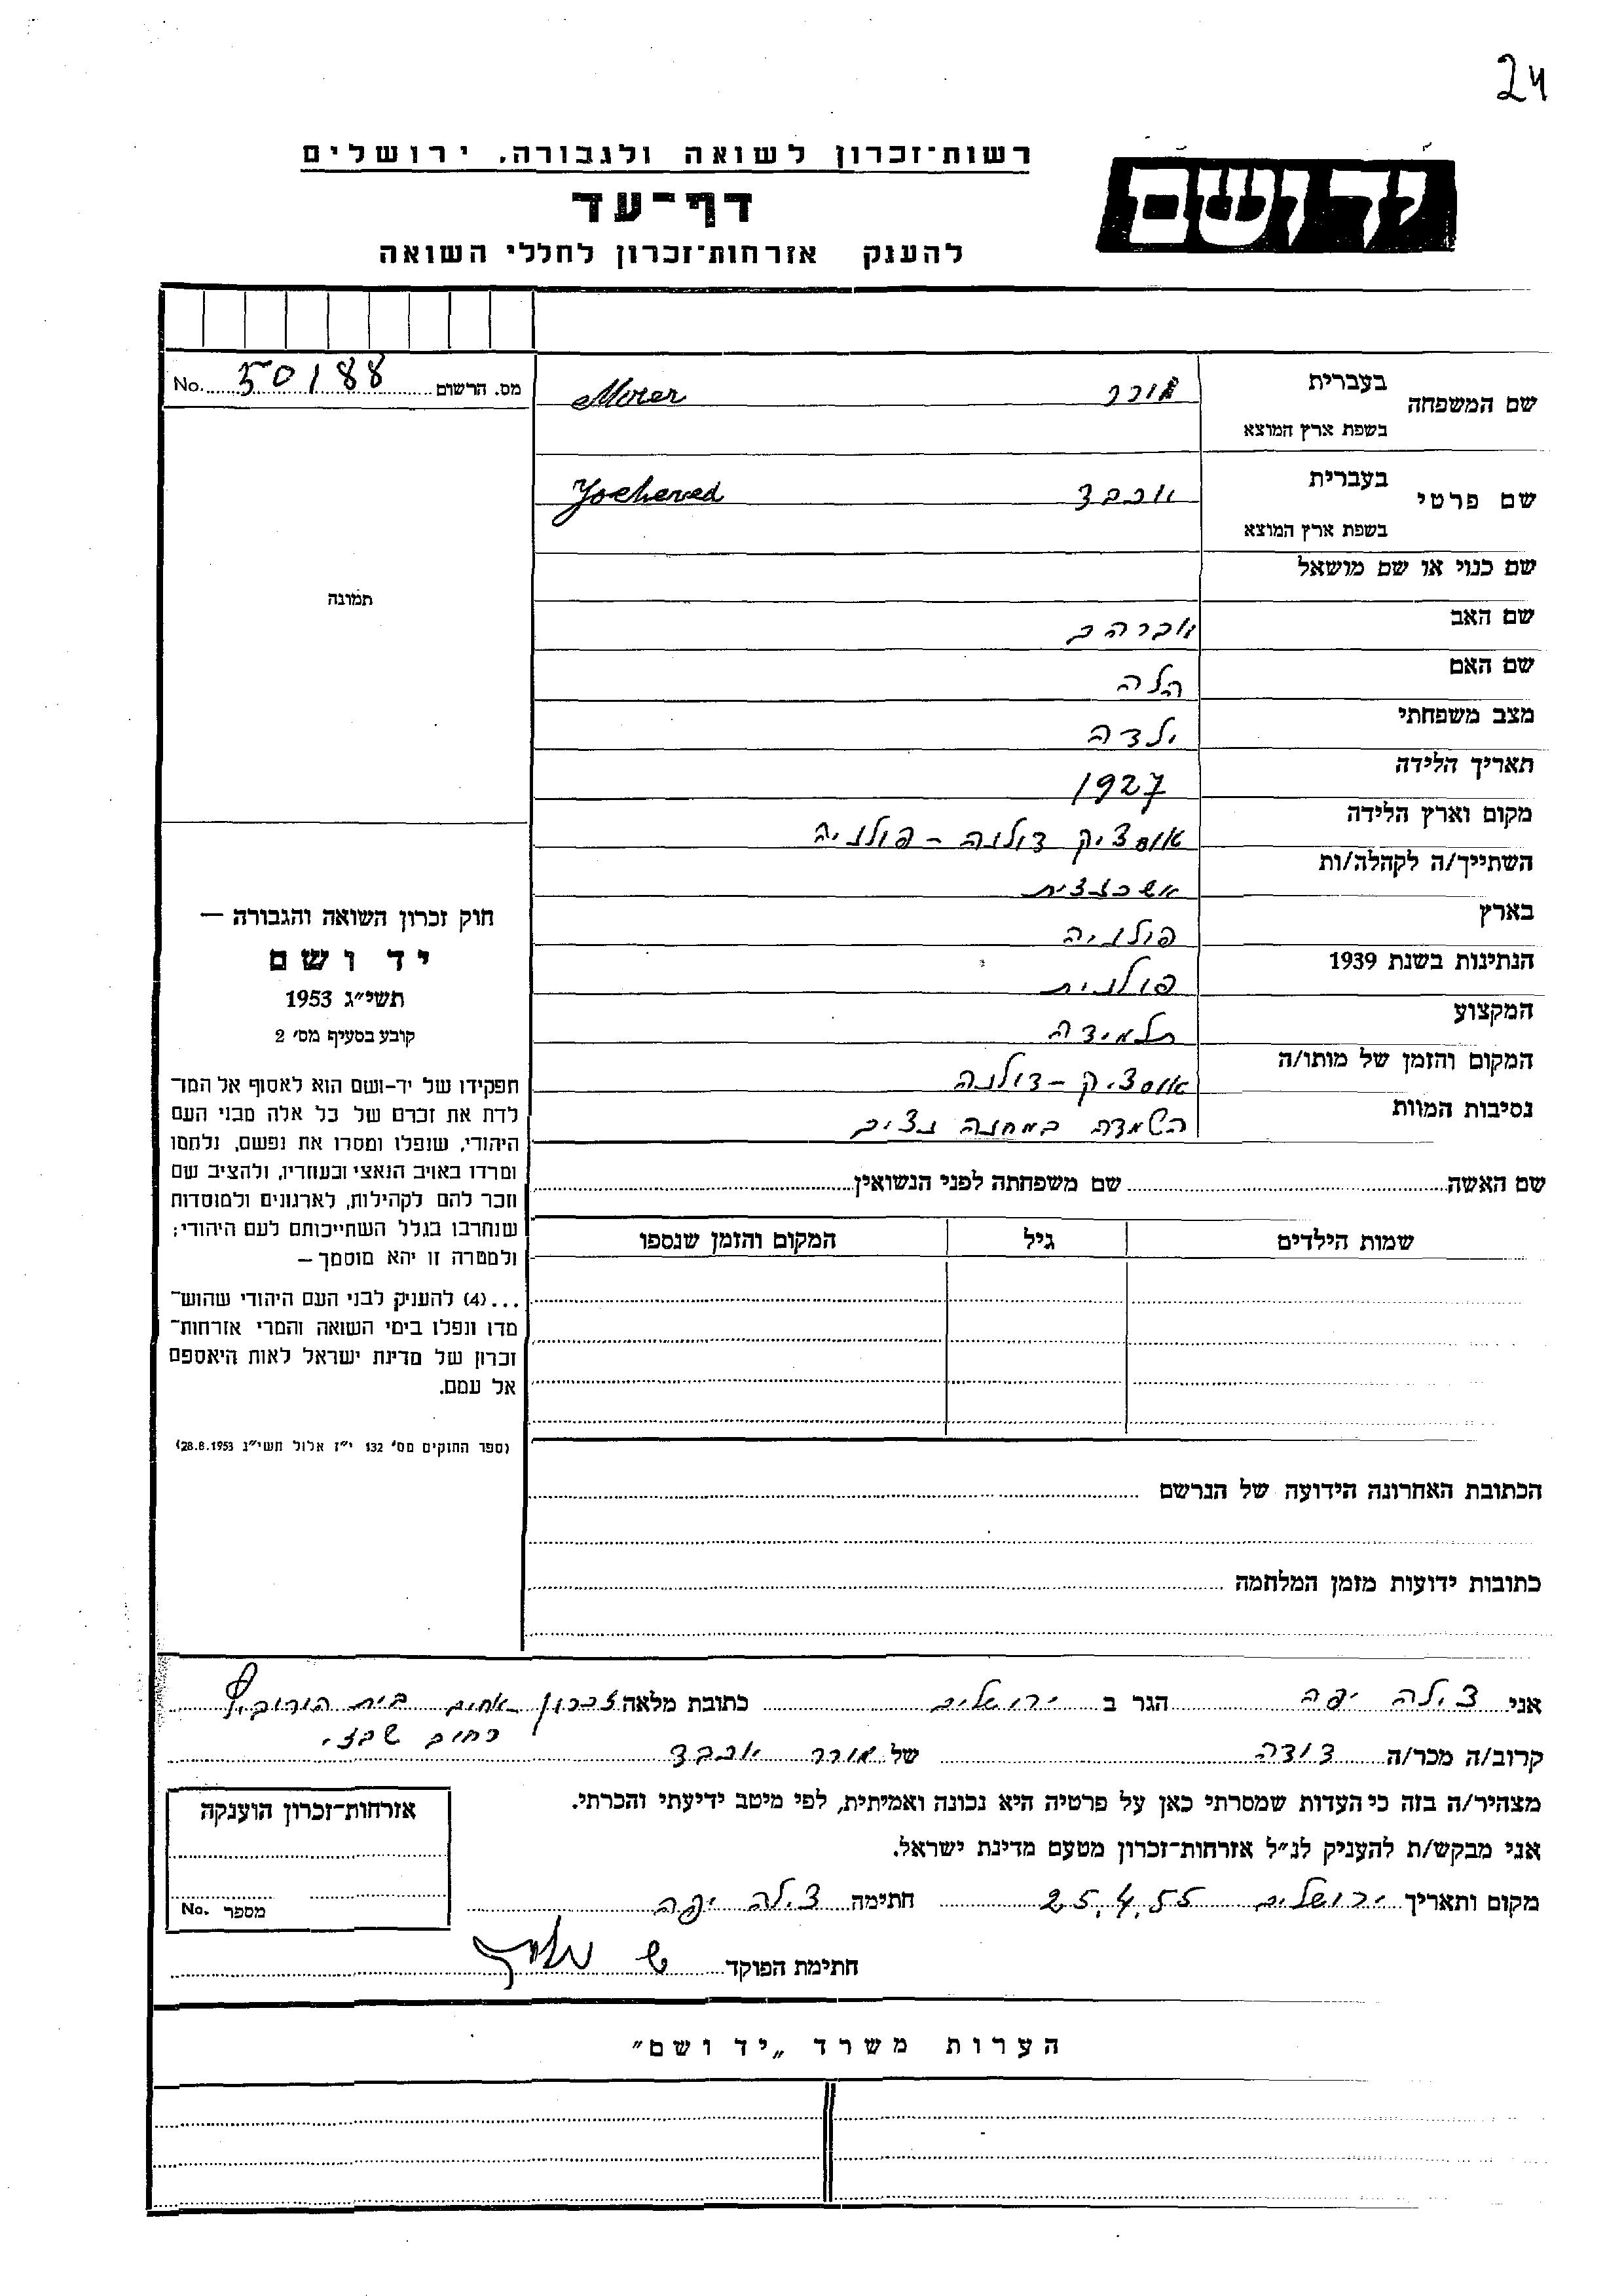 24
יד ושם
רשות-זכרון לשואה ולגבורה, ירושלים
דף-עד
להענק אזרחות-זכרון לחללי השואה
מס. הרשום 50188 No.
שם המשפחה בעברית מורר Morer
בשפת ארץ המוצא
שם פרטי בעברית יוכבד Yocheved
בשפת ארץ המוצא
שם כנוי או שם מושאל
שם האב אברהם
שם האם הלה
מצב משפחתי ילדה
תאריך הלידה 1927
מקום וארץ הלידה אוסציק דולנה - פולניה
השתייך/ה לקהלה/ות אשכנזית
בארץ פולניה
הנתינות בשנת 1939 פולנית
המקצוע תלמידה
המקום והזמן של מותו/ה אוסציק - דולנה
נסיבות המוות השמדה במחנה נצים
תמונה
חוק זכרון השואה והגבורה —
יד ושם
תשי״ג 1953
קובע בסעיף מס׳ 2
תפקידו של יד-ושם הוא לאסוף אל המו־
לדת את זכרם של כל אלה מבני העם
היהודי, שנפלו ומסרו את נפשם, נלחמו
ומרדו באויב הנאצי ובעוזריו, ולהציב שם
וזכר להם לקהילות, לארגונים ולמוסדות
שנחרבו בגלל השתייכותם לעם היהודי;
ולמטרה זו יהא מוסמך —
...(4) להעניק לבני העם היהודי שהוש־
מדו ונפלו בימי השואה והמרי אזרחות־
זכרון של מדינת ישראל לאות היאספם
אל עמם.
(ספר החוקים מס׳ 132 י״ז אלול תשי״ג 28.8.1953)
שם האשה שם משפחתה לפני הנשואין
שמות הילדים גיל המקום והזמן שנספו
הכתובת האחרונה הידועה של הנרשם
כתובות ידועות מזמן המלחמה
אני צילה יפה הגר ב ירושלים כתובת מלאה זכרון אחים בית הורוביץ
רחוב שבזי
קרוב/ה מכר/ה דודה של מורר יוכבד
מצהיר/ה בזה כי העדות שמסרתי כאן על פרטיה היא נכונה ואמיתית, לפי מיטב ידיעתי והכרתי.
אני מבקש/ת להעניק לנ״ל אזרחות-זכרון מטעם מדינת ישראל.
מקום ותאריך ירושלים 25.4.55 חתימה צילה יפה
חתימת הפוקד
אזרחות-זכרון הוענקה
מספר No.
הערות משרד „יד ושם״